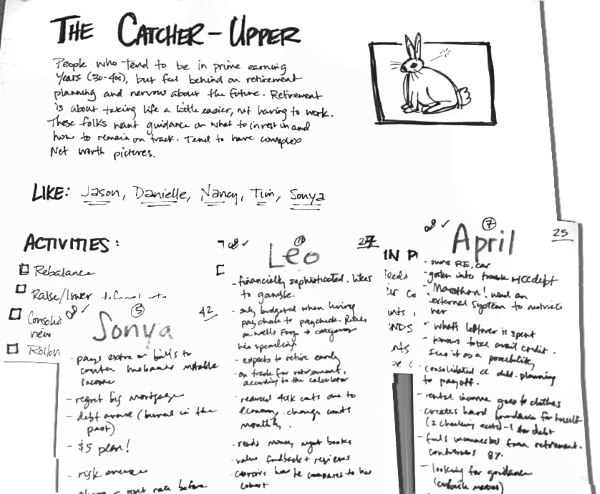 THE CATCHER-UPPER
People who tend to be in prime earning
years (30-40s), but feel behind on retirement
planning and nervous about the future. Retirement
is about taking life a little easier, not having to work.
These folks want guidance on what to invest in and
how to remain on track. Tend to have complex
Net worth pictures.
LIKE: Jason, Danielle, Nancy, Tim, Sonya
ACTIVITIES:
Rebalance
Raise/lower
Consolid
new
Rollov
5
42
Sonya
- pays extra on bills to
counter husbands unstable
income
- regret big mortgage
- debt averse (burned in the
past)
- $5 plan!
- risk averse
rate before
Leo
27
- financially sophisticated. likes
to gamble.
- only budgeted when living
paycheck to paycheck.
in Wells Fargo + categorizes
his spending
- expects to retire early
- on track for retirement,
according to the calculator
- reduced 401k conts due to
economy. change conts
monthly.
- reads money mgmt books
- value feedback + reviews
- curious how he compares to his
cohort
IN P
eeds
NDS
April
7
25
- owns RE, car
- gotten into trouble w/CC debt
- Marathon! used an
external system to motivate
her
- what's leftover is spent
- knows total avail credit.
Sees it as a possibility
- consolidated cc debt. planning
to payoff.
- rental income goes to clothes
- creates hard boundaries for herself
(2 checking accts - 1 for debt
- feels unconnected from retirement.
contributes 8%
- looking for guidance